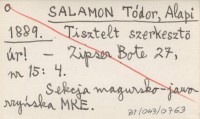 SALAMON Tódor, Alapi
1889. Tisztelt szerkesztő
úr! – Zipser Bote 27,
nr 15: 4.
Sekcja magursko-jawo
rzyńska MKE.